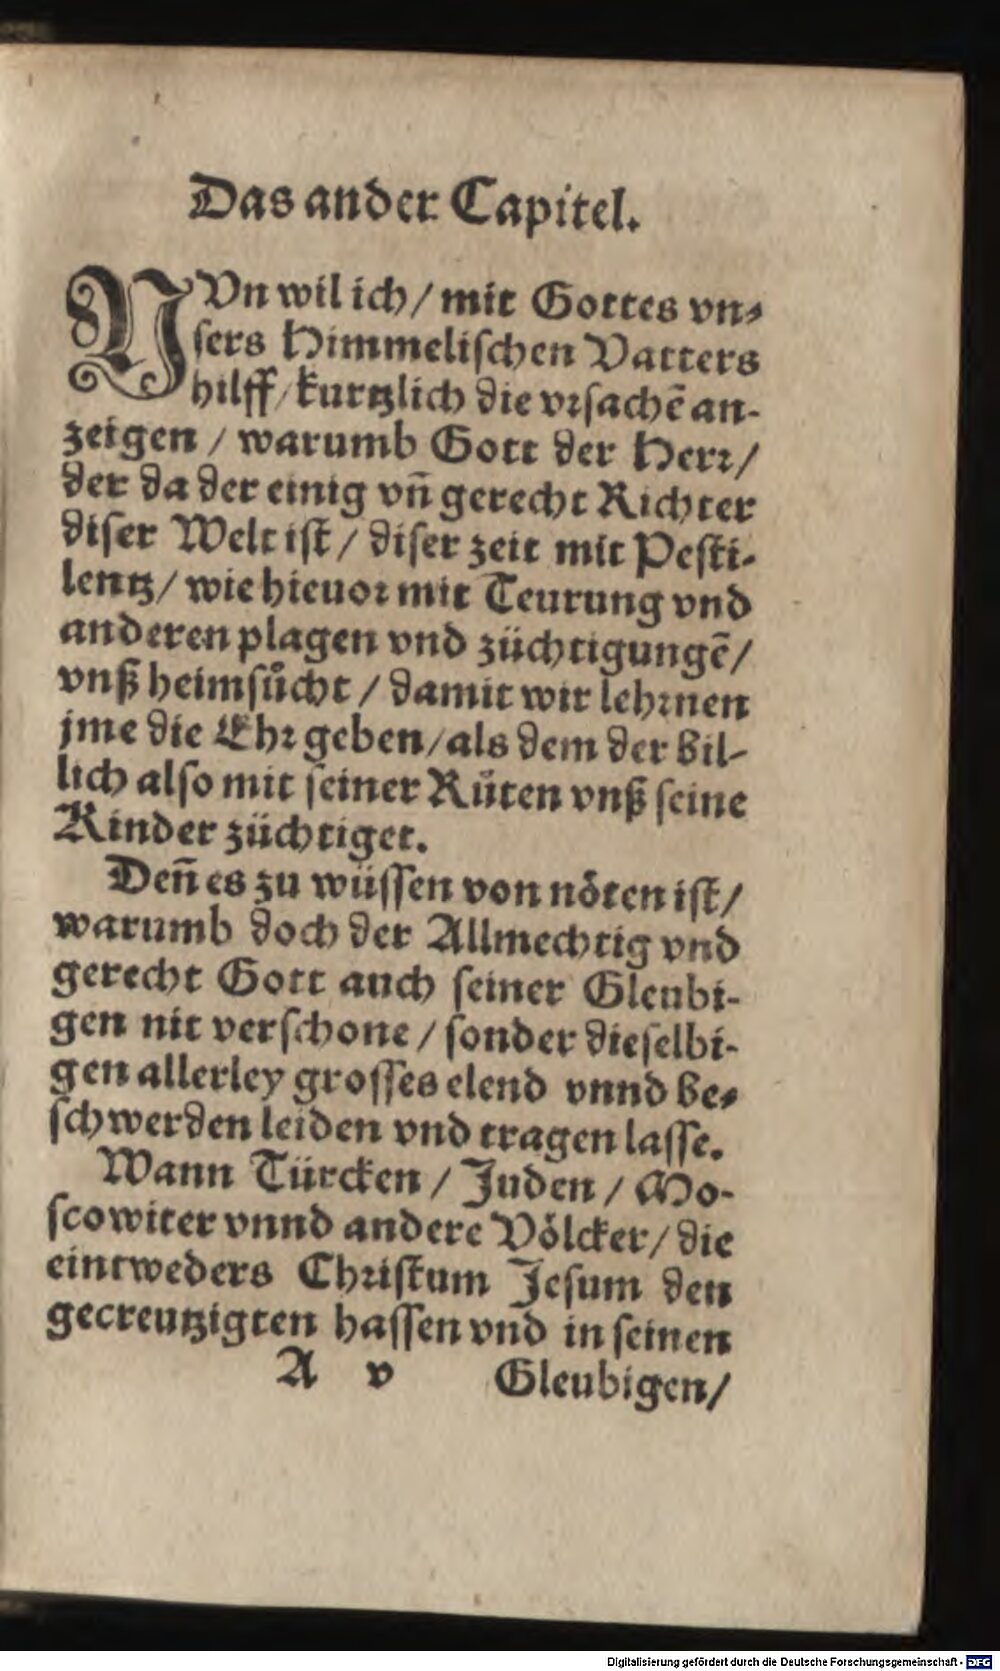 Das ander Capitel.
NVn wil ich / mit Gottes vn-
sers Himmelischen Vatters
hilff / kurtzlich die vrsachẽ an-
zeigen / warumb Gott der Herr /
der da der einig vñ gerecht Richter
diser Welt ist / diser zeit mit Pesti-
lentz / wie hieuor mit Teurung vnd
anderen plagen vnd züchtigungẽ /
vnß heimsůcht / damit wir lehrnen
jme die Ehr geben / als dem der bil-
lich also mit seiner Růten vnß seine
Kinder züchtiget.
Deñ es zu wüssen von nöten ist /
warumb doch der Allmechtig vnd
gerecht Gott auch seiner Gleubi-
gen nit verschone / sonder dieselbi-
gen allerley grosses elend vnnd be-
schwerden leiden vnd tragen lasse.
Wann Türcken / Juden / Mo-
scowiter vnnd andere Völcker / die
eintweders Christum Jesum den
gecreutzigten hassen vnd in seinen
A v Gleubigen /
Digitalisierung gefördert durch die Deutsche Forschungsgemeinschaft - DFG